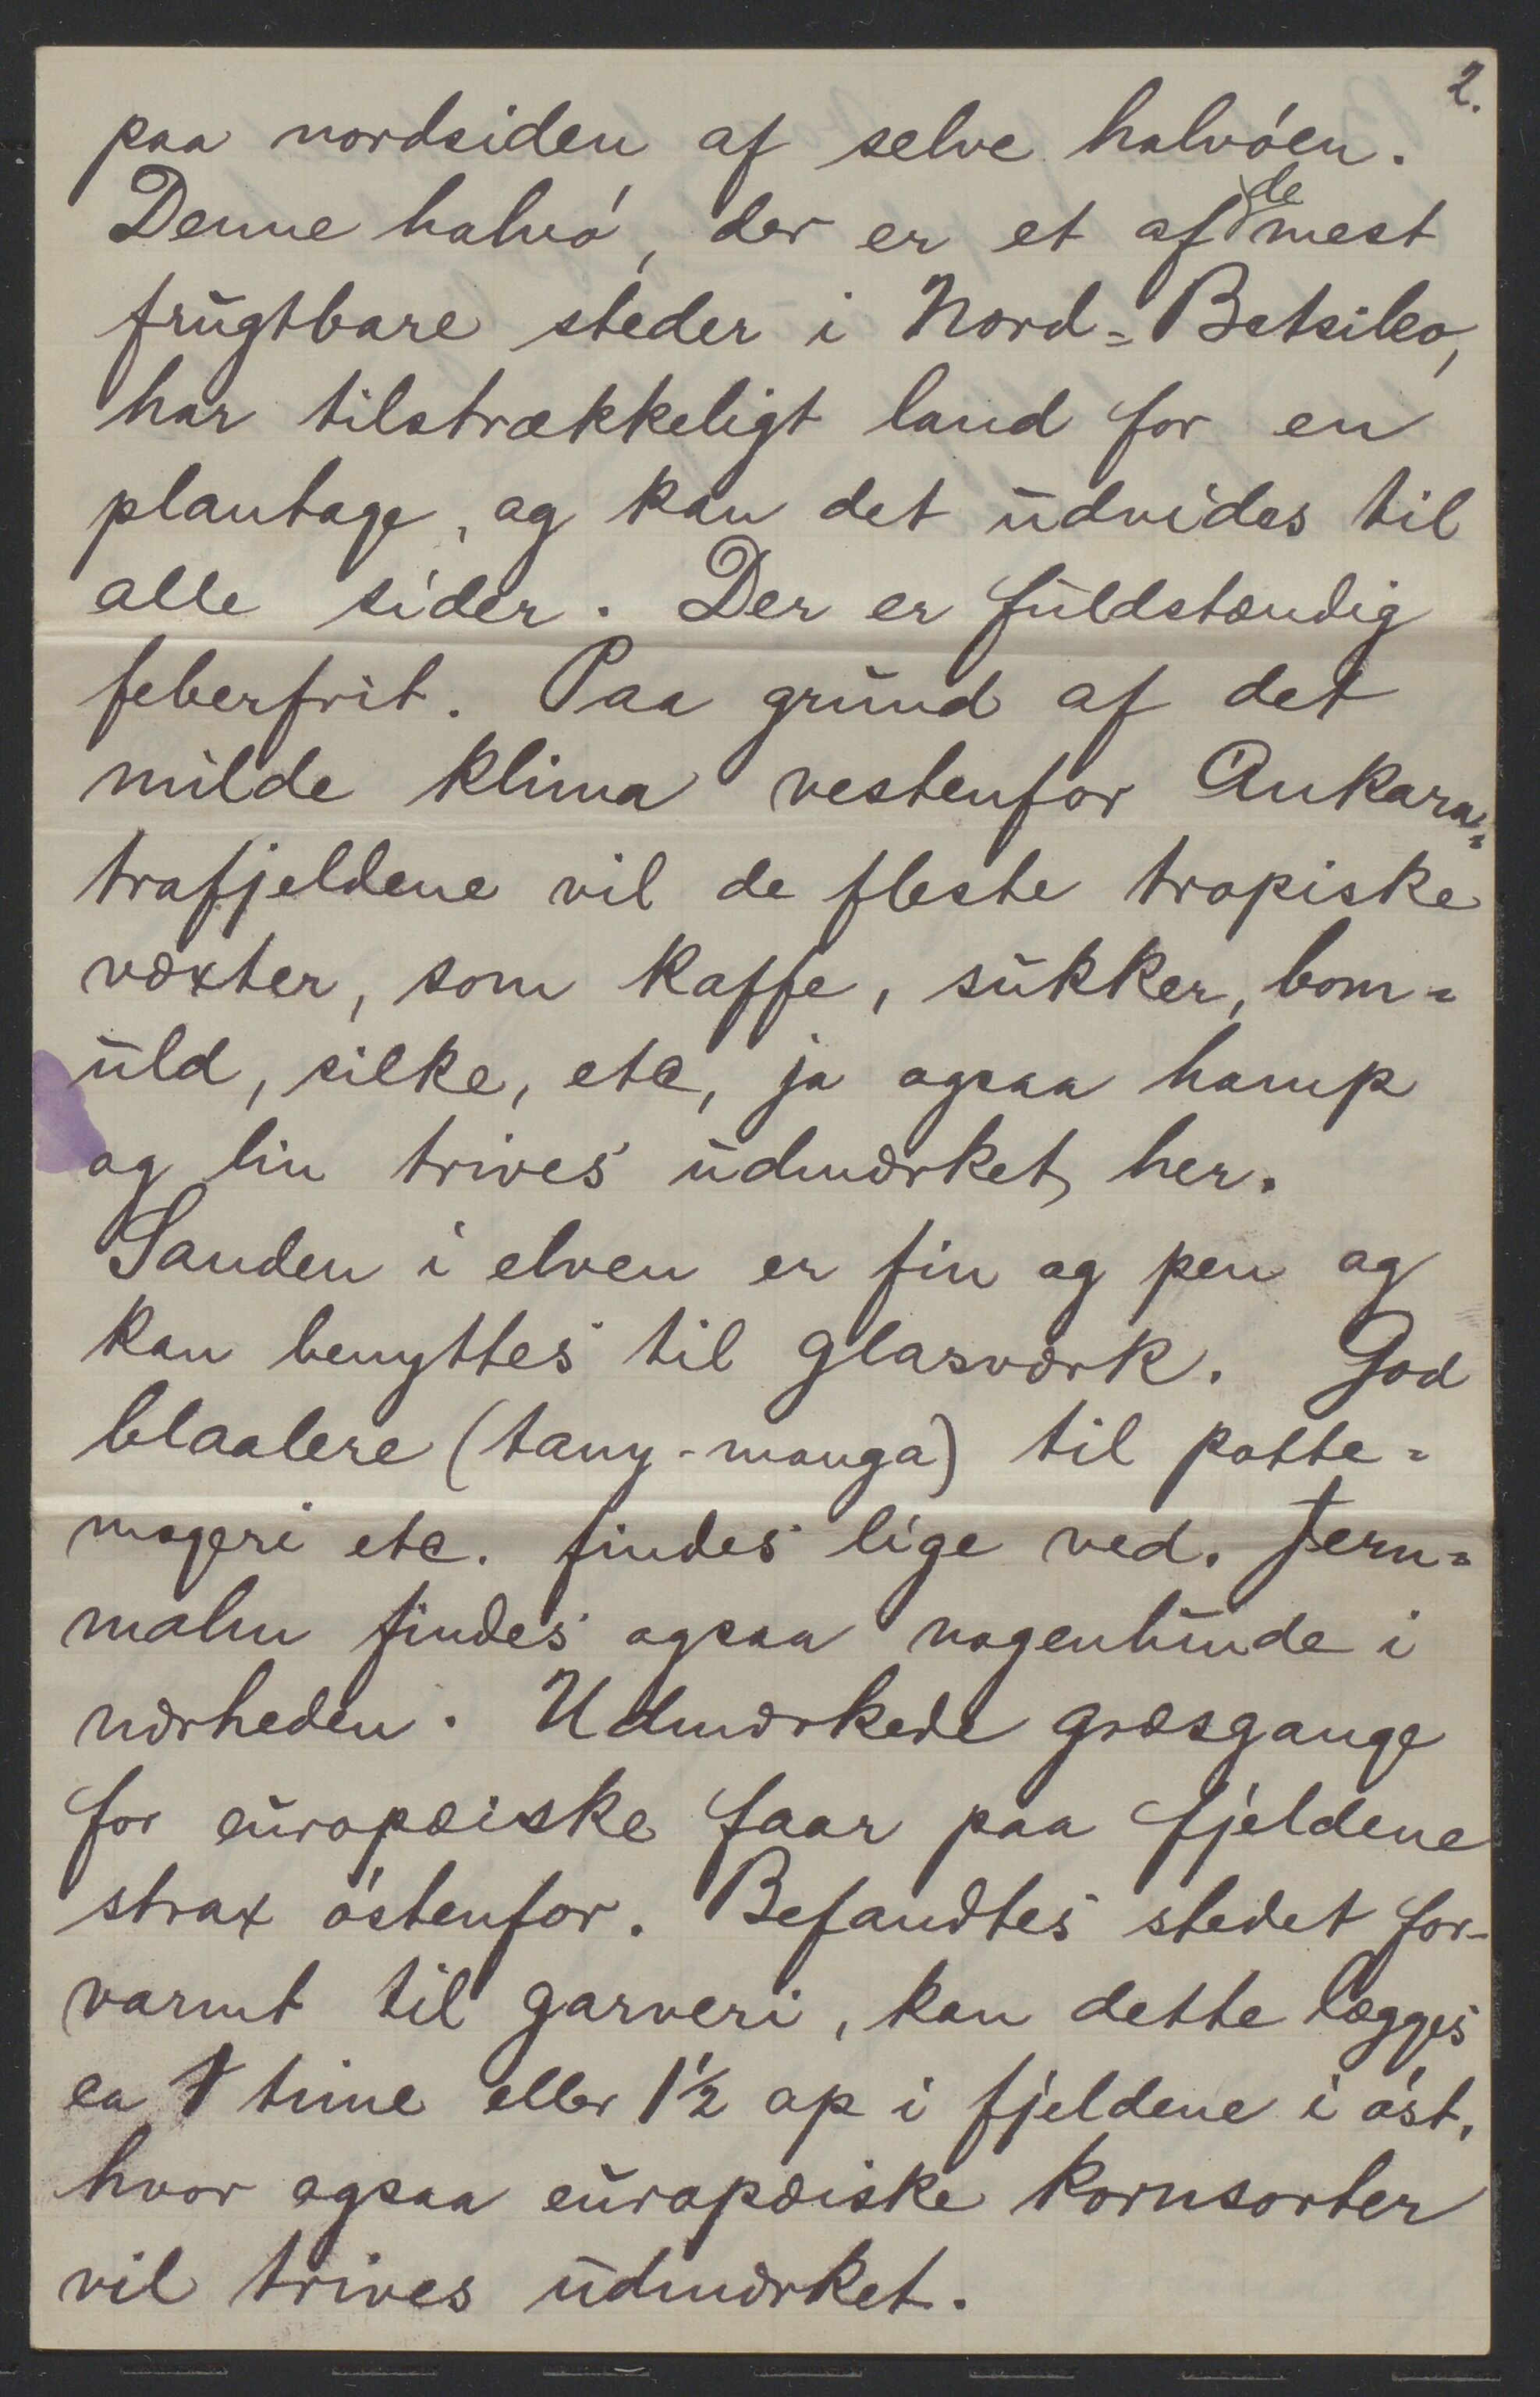 2.
paa nordsiden af selve halvóen.
Denne halvó, der er et af de mest
frugtbare steder i Nord=Betsileo,
har tilstrækkeligt land for en
plantage, og kan det udvides til
alle sider. Der er fuldstændig
feberfrit. Paa grund af det
milde klima vestenfor Ankara=
trafjeldene vil de fleste tropiske
væxter, som kaffe, sukker, bom=
uld, silke, etc, ja ogsaa hamp
og lin trives udmærket her.
Sanden i elven er fin og pen og
kan benyttes til glasværk. God
blaalere (tany-manga) til potte=
mageri etc. findes lige ved. Jern=
malm findes ogsaa nogenlunde i
nærheden. Udmærkede græsgange
for europæiske faar paa fjeldene
strax óstenfor. Befandtes stedet for-
varmt til garveri, kan dette lægges
ca 1 time eller 1½ op i fjeldene i óst,
hvor ogsaa europæiske kornsorter
vil trives udmærket.